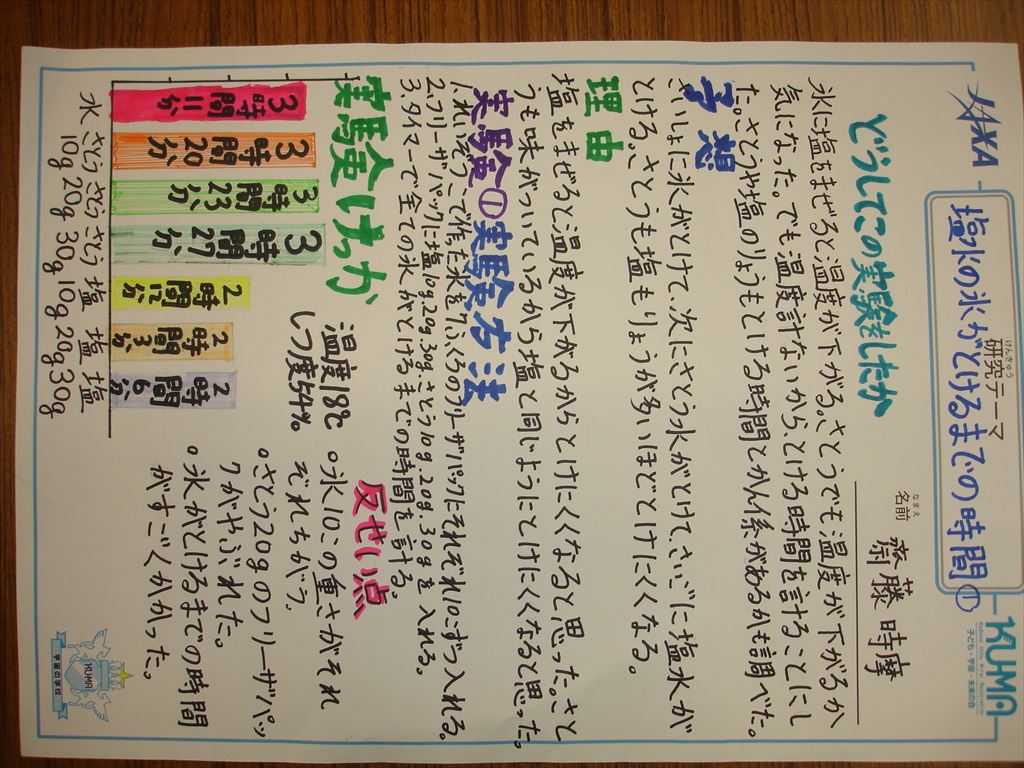 YAC
研究テーマ
けんきゅう
塩水の氷がとけるまでの時間①
KUMA
子ども・宇宙・未来の会
名前
なまえ
齋藤 時摩
どうしてこの実験をしたか
氷に塩をまぜると温度が下がる。さとうでも温度が下がるか
気になった。でも温度計ないからとける時間を計ることにし
た。さとうや塩のりょうもとける時間とかん係があるかも調べた。
予想
さいしょに氷がとけて、次にさとう水がとけて、さいごに塩水が
とける。さとうも塩もりょうが多いほどとけにくくなる。
理由
塩をまぜると温度が下がるからとけにくくなると思った。さと
うも味がついているから塩と同じようにとけにくくなると思った。
実験①実験方法
1.れいぞうこで作た氷を7ふくろのフリーザパックにそれぞれ10こずつ入れる。
2.フリーザパックに塩10g.20g.30g.さとう10g.20g.30gを入れる。
3.タイマーで全ての氷がとけるまでの時間を計る。
実験けっか
温度18℃
しつ度54%
3時間11分
3時間20分
3時間23分
3時間27分
2時間12分
2時間3分
2時間6分
水
さとう10g
さとう20g
さとう30g
塩10g
塩20g
塩30g
反せい点
。氷10この重さがそれ
ぞれちがう。
。さとう20gのフリーザパッ
クがやぶれた。
。氷がとけるまでの時間
がすごくかかった。
KUMA
宇宙の学校